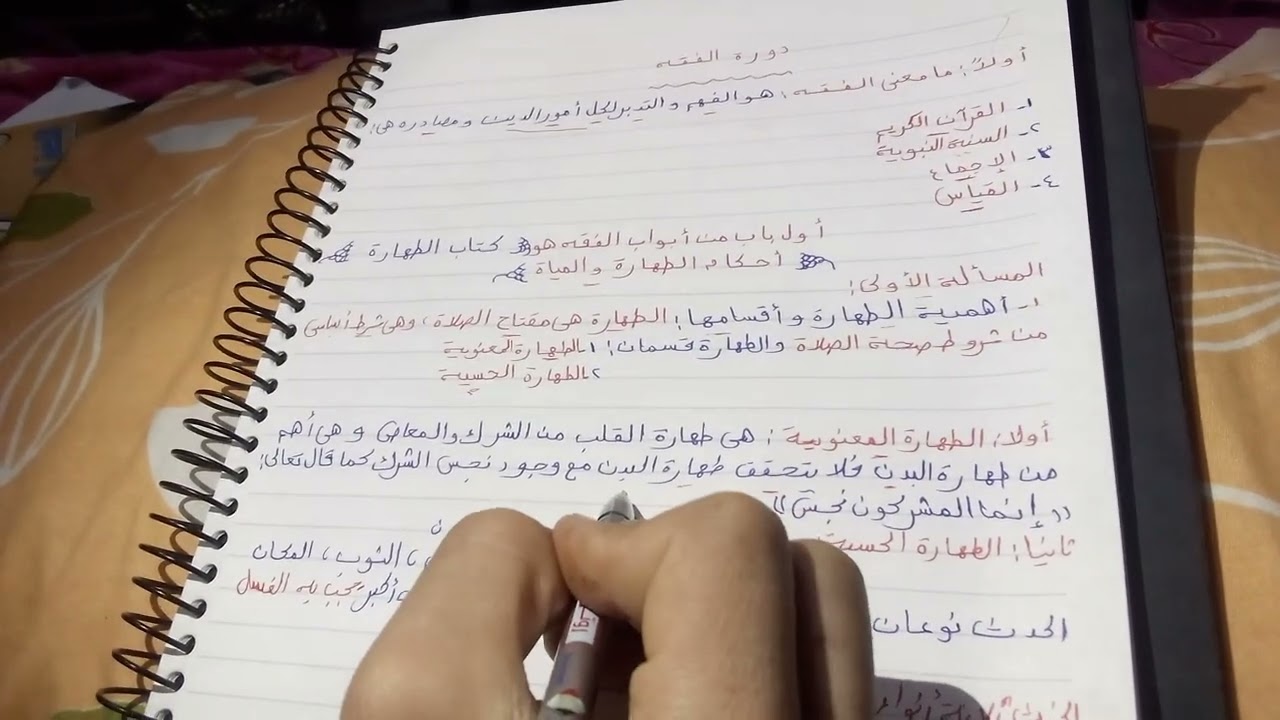 دورة الفقه
أولاً: ما معنى الفقه: هو الفهم والتدبر لكل أمور الدين ومصادره هى:
١- القرآن الكريم
٢- السنة النبوية
٣- الإجماع
٤- القياس
أول باب من أبواب الفقه هو كتاب الطهارة
أحكام الطهارة والمياة
المسألة الأولى:
١- أهمية الطهارة وأقسامها: الطهارة هى مفتاح الصلاة، وهى شرط أساسى
من شروط صحة الصلاة والطهارة قسمان: ١ـ الطهارة المعنوية
٢ـ الطهارة الحسية
أولا: الطهارة المعنوية: هى طهارة القلب من الشرك والمعاصى وهى أهم
من طهارة البدن فلا يتحقق طهارة البدن مع وجود نجس الشرك كما قال تعالى:
((إنما المشركون نجس))
ثانيا: الطهارة الحسية
، الثوب، المكان
أكبر يجب به الغسل
الحدث نوعان